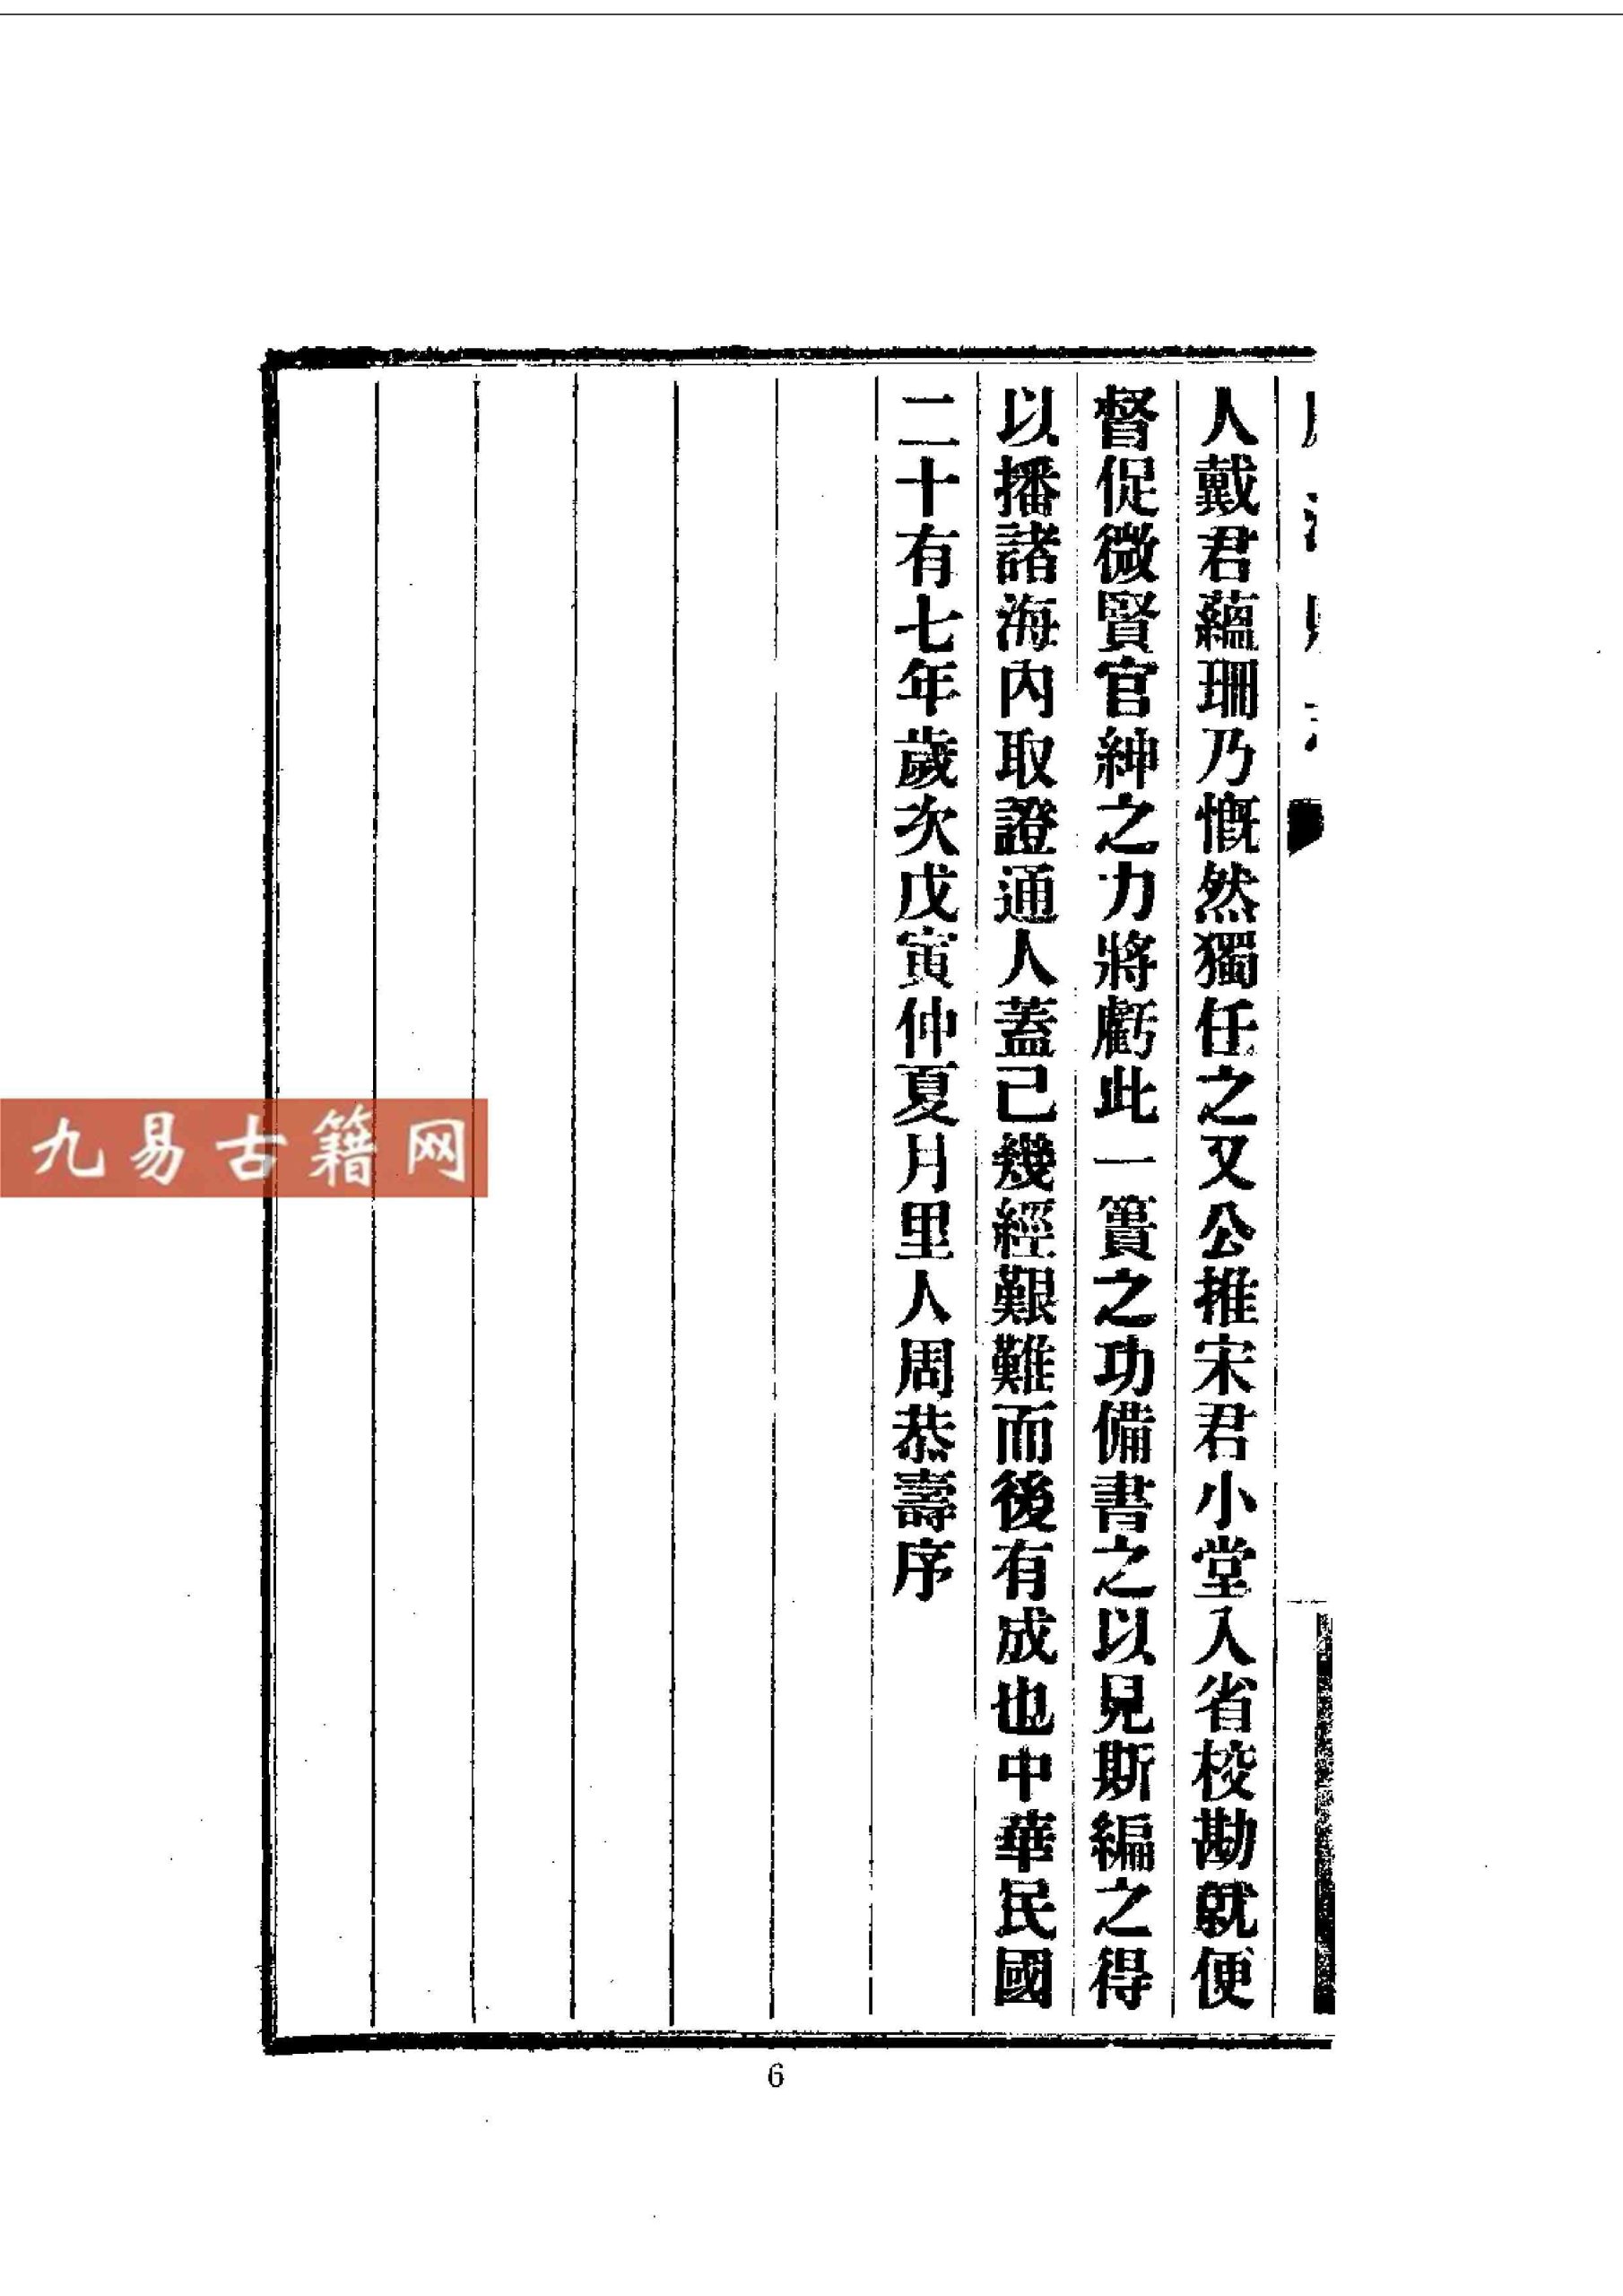 人戴君蘊珊乃慨然獨任之又公推宋君小堂入省校勘就便
督促微賢官紳之力將虧此一簣之功備書之以見斯編之得
以播諸海內取證通人蓋已幾經艱難而後有成也中華民國
二十有七年歲次戊寅仲夏月里人周恭壽序
九易古籍网
6